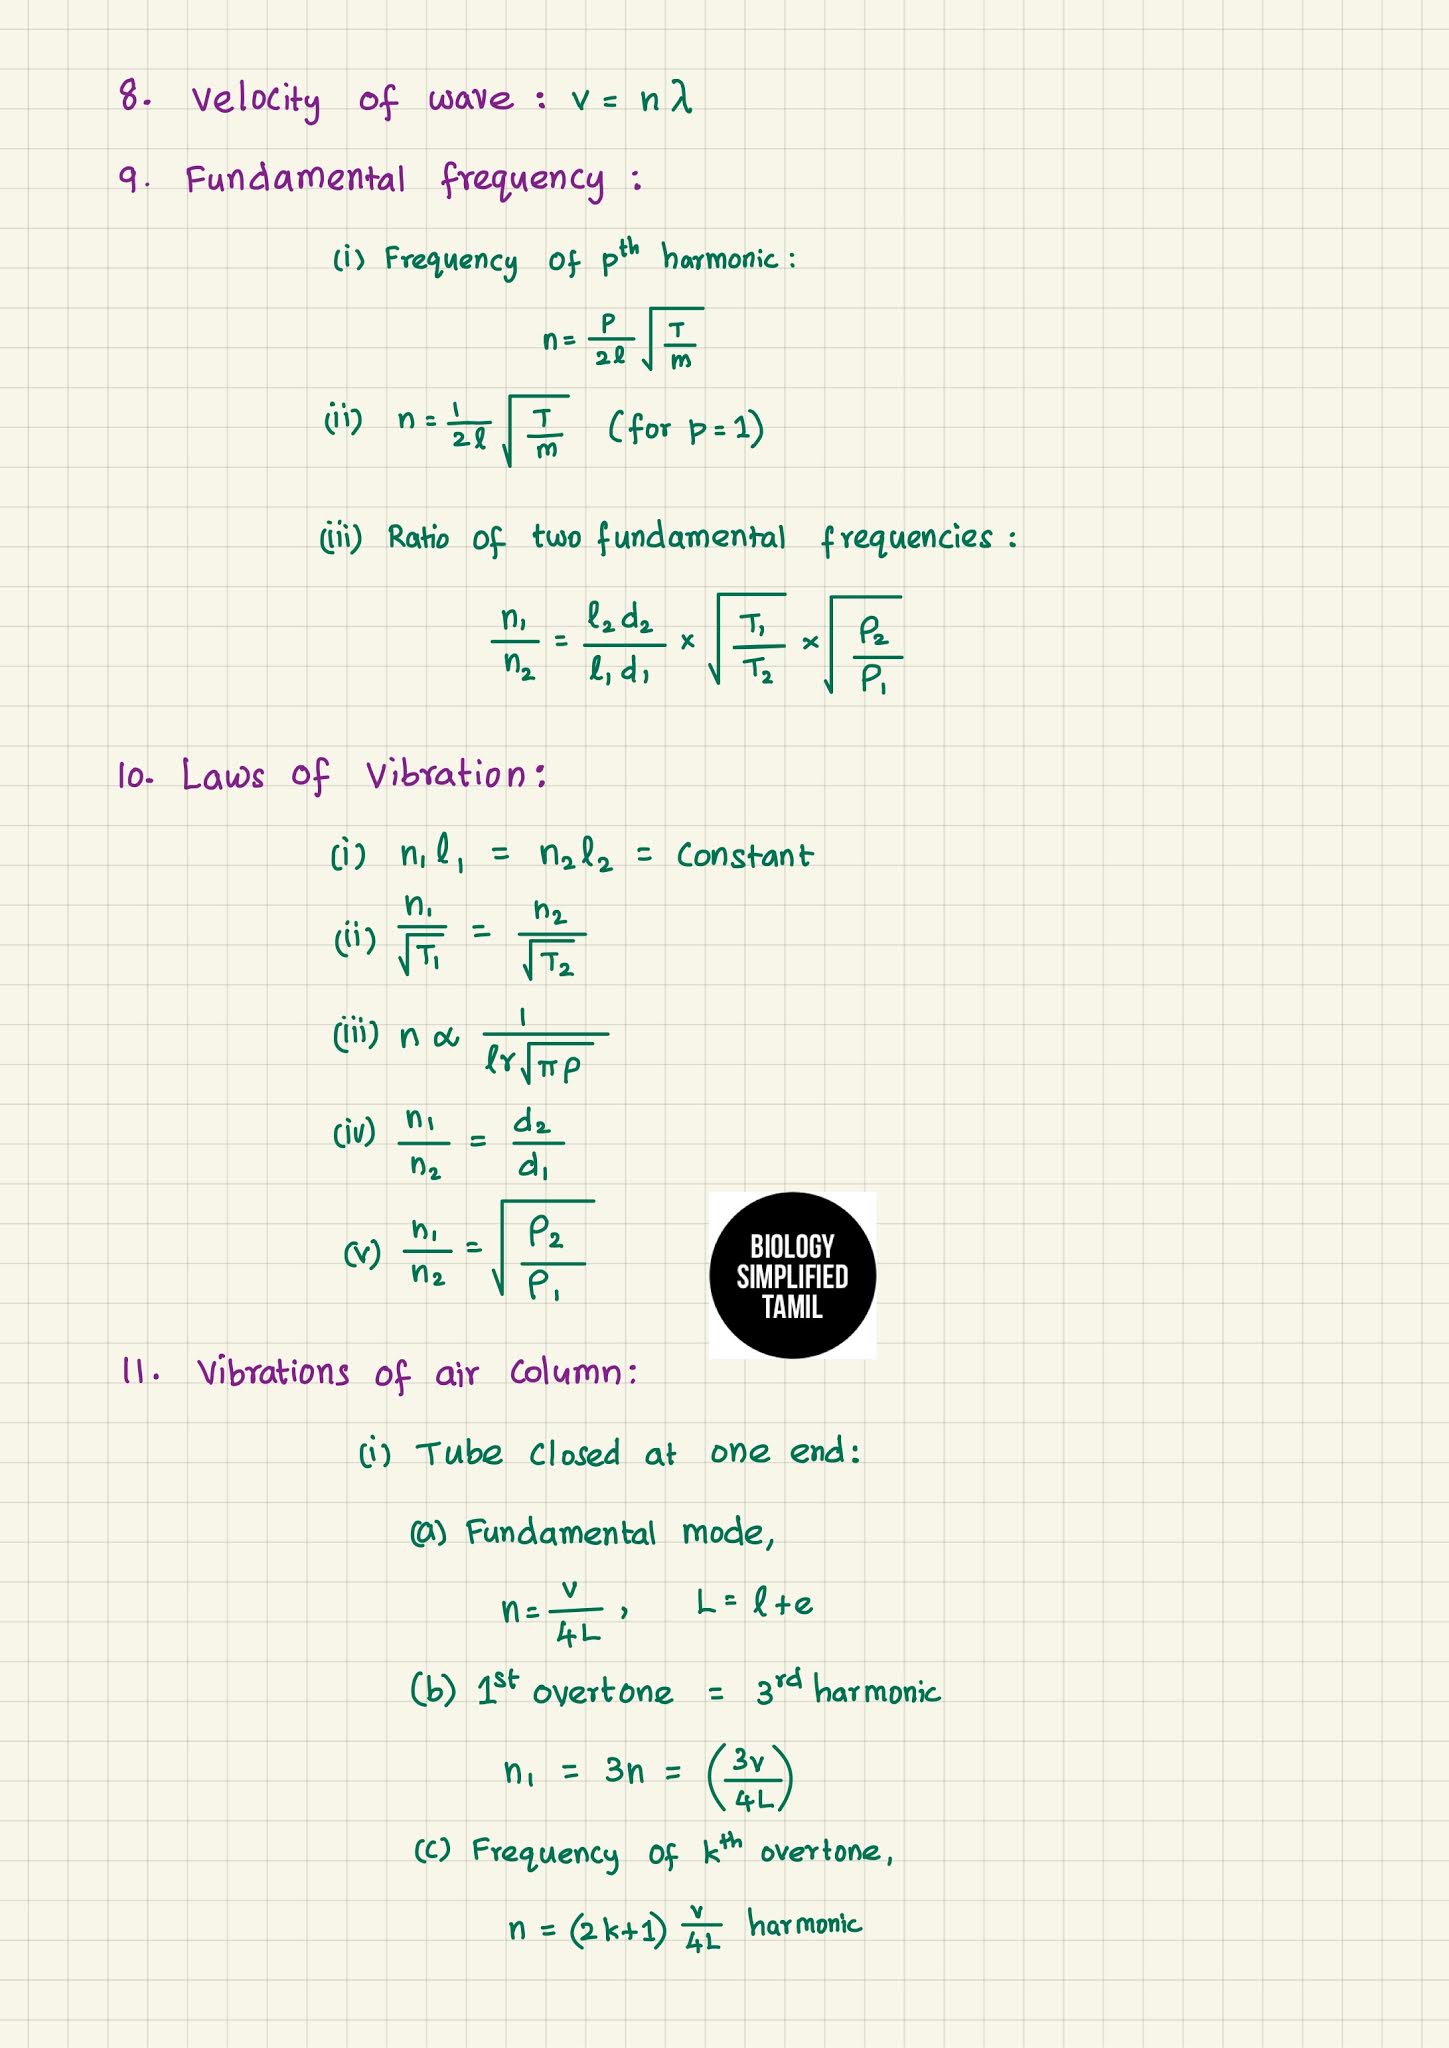 8. Velocity of wave : v = nλ
9. Fundamental frequency :
(i) Frequency of pᵗʰ harmonic :
n = p/2ℓ √(T/m)
(ii) n = 1/2ℓ √(T/m) (for p = 1)
(iii) Ratio of two fundamental frequencies :
n₁/n₂ = ℓ₂d₂/ℓ₁d₁ × √(T₁/T₂) × √(ρ₂/ρ₁)
10. Laws of Vibration :
(i) n₁ℓ₁ = n₂ℓ₂ = Constant
(ii) n₁/√T₁ = n₂/√T₂
(iii) n ∝ 1/ℓr√πρ
(iv) n₁/n₂ = d₂/d₁
(v) n₁/n₂ = √(ρ₂/ρ₁)
BIOLOGY
SIMPLIFIED
TAMIL
11. Vibrations of air Column :
(i) Tube Closed at one end :
(a) Fundamental mode,
n = v/4L , L = ℓ + e
(b) 1ˢᵗ overtone = 3ʳᵈ harmonic
n₁ = 3n = (3v/4L)
(c) Frequency of kᵗʰ overtone,
n = (2k+1) v/4L harmonic